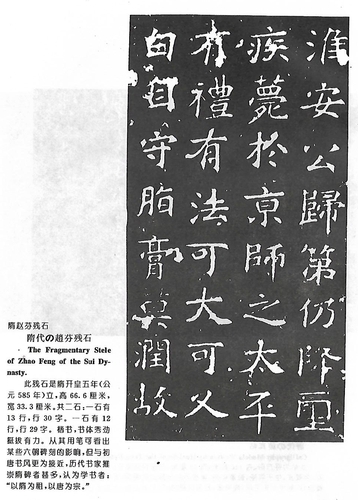 淮安公歸第仍降璽
疾薨於京師之太平
有禮有法可大可久
白自守脂膏莫潤故
隋赵芬残石
隋代の趙芬残石
The Fragmentary Stele
of Zhao Feng of the Sui Dy-
nasty.
此残石是隋开皇五年(公
元 585 年)立,高 66.6 厘米,
宽 33.3 厘米,共二石:一石有
13 行,行 30 字。一石有 12
行,行 29 字。楷书,书体秀劲
挺拔有力。从其用笔可看出
某些六朝碑刻的影响,但与初
唐书风更为接近,历代书家推
崇隋碑者甚多,认为学书者:
“以隋为祖,以唐为宗。”